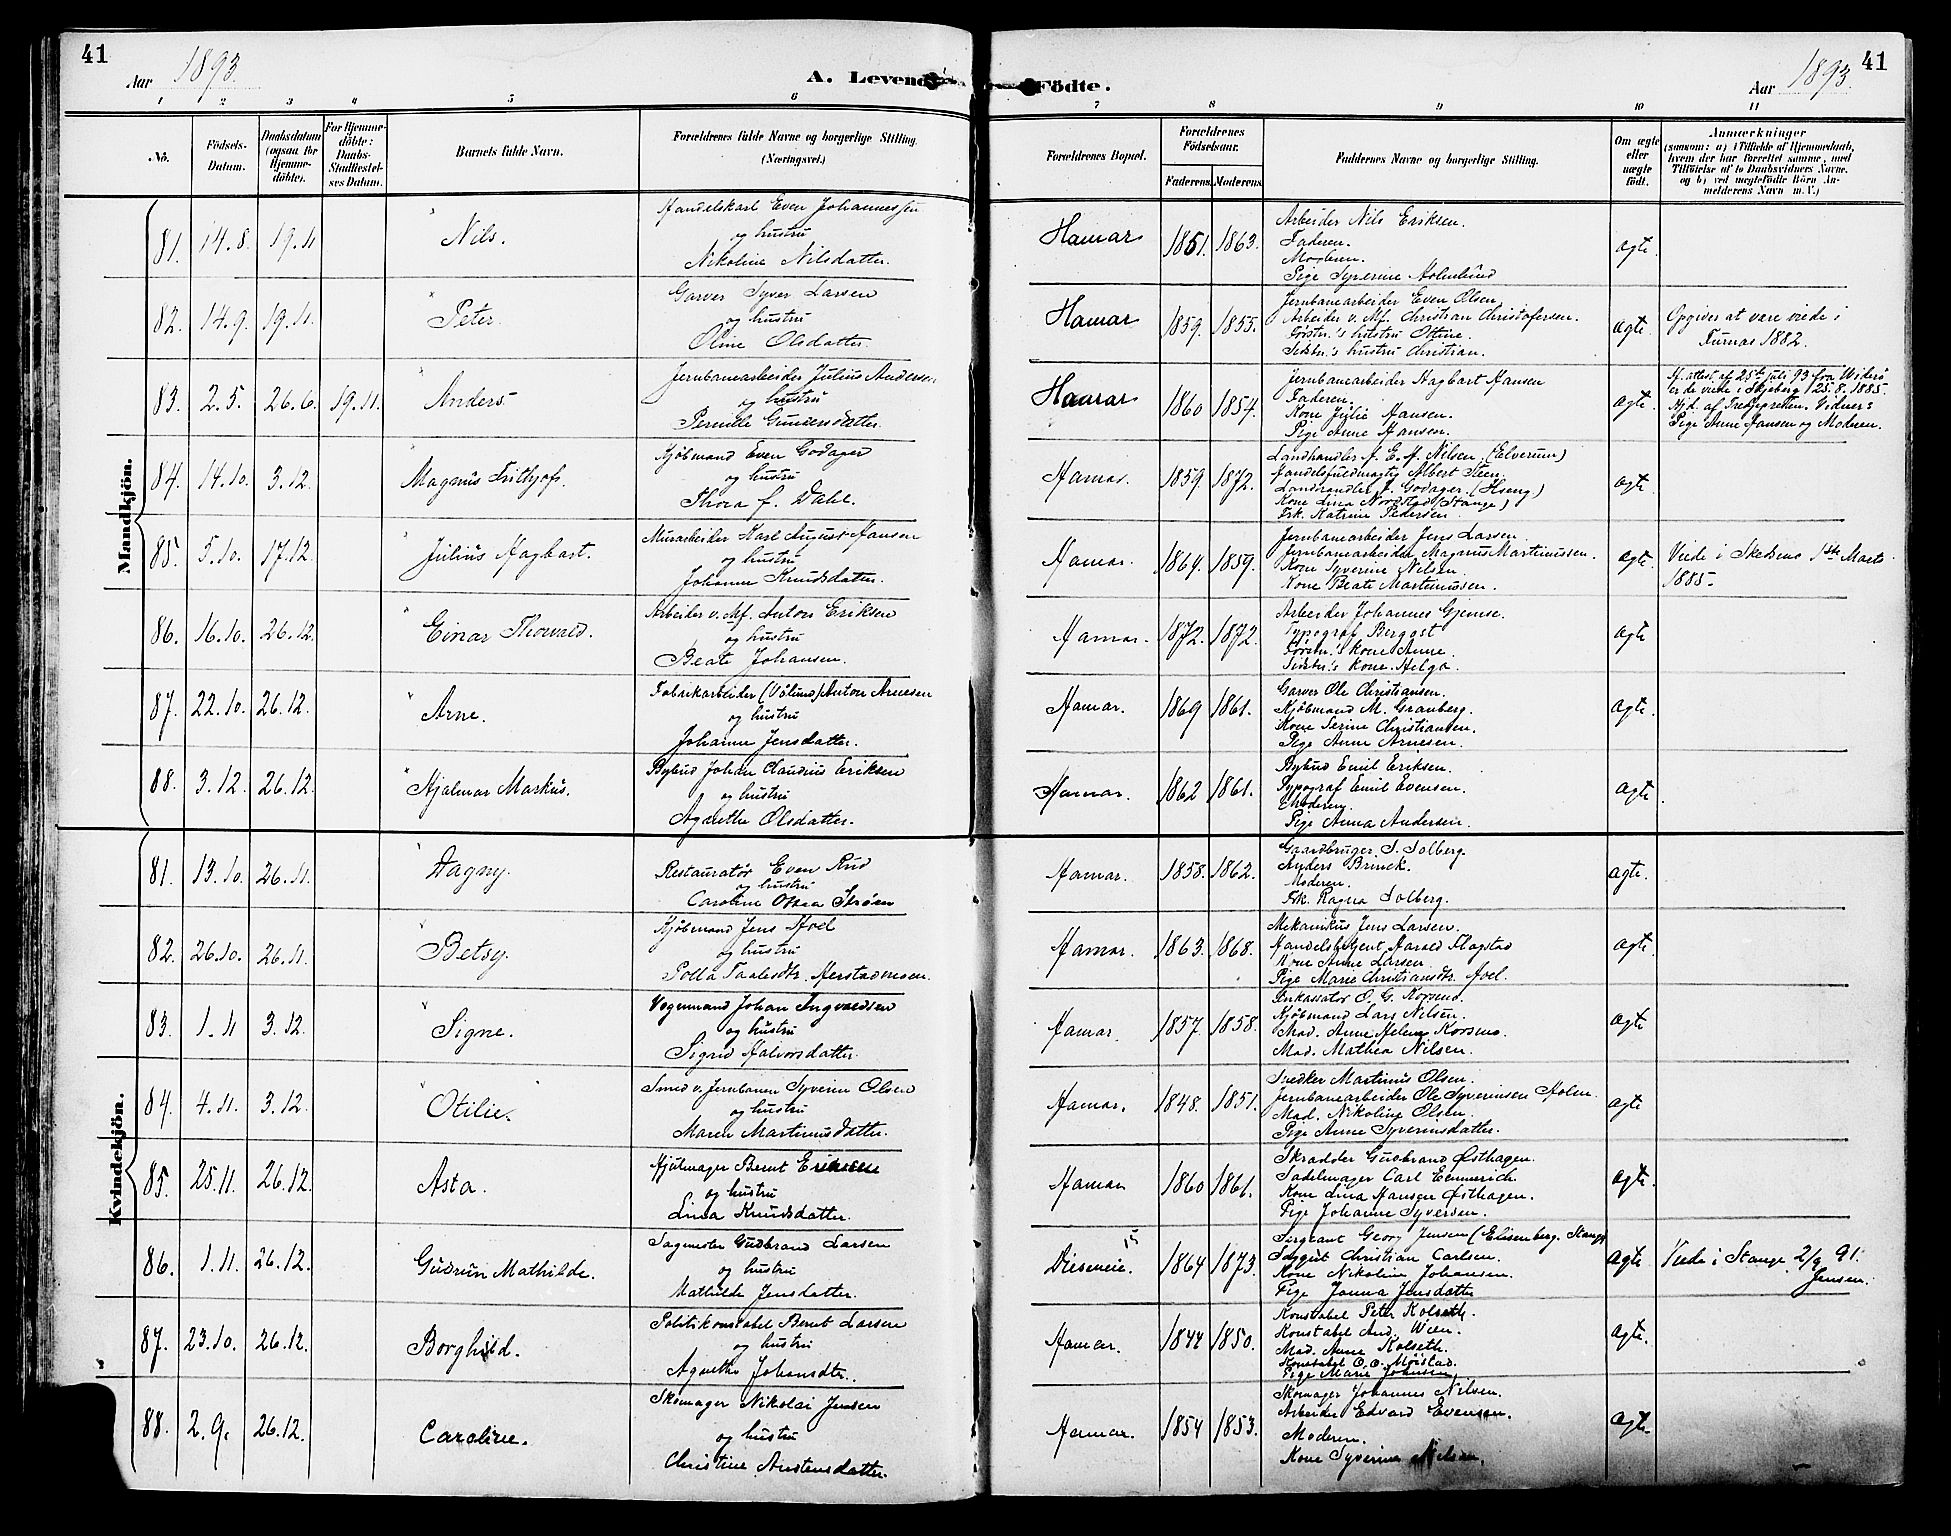 41
Aar 1893.
A. Levende
Födte.
Aar 1893.
41
1 2 3 4 5 6 7 8 9 10 11
No.
Födsels-Datum.
Daabsdatum (ogsaa for Hjemme-döbte).
For Hjemme-döbte: Daabs-Stadfæstel-ses Datum.
Barnets fulde Navn.
Forældrenes fulde Navne og borgerlige Stilling.
(Næringsvei.)
Forældrenes Bopæl.
Forældrenes Födselsaar.
Faderens. Moderens.
Faddernes Navne og borgerlige Stilling.
Om ægte eller uægte födt.
Anmærkninger
(saasom: a) i Tilfælde af Hjemmedaab,
hvem der har forrettet samme, med
Tilföielse af to Daabsvidners Navne,
og b) ved uægtefödte Börn An-
melderens Navn m. V.)
Mandkjön.
81. 14.8. 19.11 Nils.
Handelskarl Even Johannessen
og hustru
Nikoline Nilsdatter.
Hamar 1851. 1863.
Arbeider Nils Eriksen.
Faderen.
Moderen.
Pige Syverine Holmlund
ægte
82. 14.9. 19.11. Peter.
Garver Syver Larsen
og hustru
Oline Olsdatter.
Hamar 1859. 1855.
Jernbanearbeider Even Olsen
Arbeider v. Mf. Christian Christofersen.
Førstn.'s hustru Ottine.
Sidstn.'s hustru Christian.
ægte
Opgives at være viede i
Furnæs 1882.
83. 2.5. 26.6. 19.11. Anders
Jernbanearbeider Julius Andersen
og hustru
Pernille Gundersdatter.
Hamar 1860 1854.
Jernbanearbeider Hagbart Hansen
Faderen.
Kone Julie Hansen.
Pige Anne Hansen.
ægte
attest af 25de juli 93 fra
er de viede i Skjeberg 25.8.1885.
Hjd. af Vidner:
Pige Anne Hansen og Moderen.
84. 14.10. 3.12. Magnus Frithjof.
Kjøbmand Even Godager
og hustru
Thora f. Dahl.
Hamar. 1859. 1872.
Landhandler A. E. A. Nilsen. (Elverum)
Handelsfuldmægtig Albert Steen.
Landhandler Godager. (Hseng)
Kone Lina Nordstad (Stange)
Frk. Katrine Pedersen.
ægte
85. 5.10. 17.12. Julius Hagbart.
Murarbeider Karl August Hansen
og hustru
Johanne Knudsdatter.
Hamar. 1864. 1859.
Jernbanearbeider Jens Larsen.
Jernbanearbeider Magnus Martinussen.
Kone Syverine Nilsen.
Kone Beate Martinussen.
ægte.
Viede i Skedsmo 1ste Marts
1885.
86. 16.10. 26.12. Einar Thorvald.
Arbeider v. Mf. Anton Eriksen
og hustru
Beate Johansen.
Hamar. 1872. 1872.
Arbeider Johannes Gjemse.
Typograf Bergqst
Førstn.'s Kone Anne.
Sidstn.'s Kone Helga.
ægte
87. 22.10. 26.12. Arne.
Fabrikarbeider (Vølund) Anton Arnesen
og hustru
Johanne Jensdatter.
Hamar. 1869 1861.
Garver Ole Christiansen.
Kjøbmand M. Granberg.
Kone Serine Christiansen.
Pige Anne Arnesen.
ægte.
88. 3.12. 26.12. Hjalmar Markus.
Bybud Johan Claudius Eriksen
og hustru
Agnethe Olsdatter.
Hamar. 1862 1861.
Bybud Emil Eriksen.
Typograf Emil Evensen.
Moderen.
Pige Anna Andersen.
ægte
Kvindekjön.
81. 13.10. 26.11. Dagny.
Restauratør Even Rud
og hustru
Caroline Strøm
Hamar. 1858. 1862.
Gaardbruger S. Solberg.
Anders Brinck.
Moderen.
Frk. Ragna Solberg.
ægte.
82. 26.10. 26.11. Betsy.
Kjøbmand Jens Hoel
og hustru
Hamar. 1863. 1868.
Mekanikus Jens Larsen.
Handelsagent Harald Slagstad
Kone Anne Larsen
Pige Marie Christiansdtr. Hoel.
ægte.
83. 1.11 3.12. Signe.
Vognmand Johan Ingvaldsen
og hustru
Sigrid Halvorsdatter.
Hamar. 1857. 1858.
Inkassator O. G. Korsmo.
Kjøbmand Lars Nilsen.
Mad. Anne Helene Korsmo.
Mad. Mathea Nilsen.
ægte
84. 4.11. 3.12. Otilie.
Smed v. Jernbanen Syverin Olsen
og hustru
Maren Martinusdatter.
Hamar. 1848. 1851.
Snedker Martinus Olsen.
Jernbanearbeider Ole Syverinsen Holm.
Mad. Nikoline Olsen.
Pige Anne Syverinsdatter.
ægte
85. 25.11. 26.12. Asta.
Hjulmager Bernt Eriksen
og hustru
Lina Knudsdatter.
Hamar 1860 1861.
Skrædder Gudbrand Østhagen.
Sadelmager Carl Emmerich.
Kone Lina Hansen Østhagen.
Pige Johanne Syversen.
ægte.
86. 1.11. 26.12. Gudrun Mathilde.
Sagmester Gudbrand Larsen
og hustru
Mathilde Jensdatter.
Diseneie. 1864 1873.
Sergeant Georg Jensen (Elisenberg. Stange)
Christian Carlsen.
Kone Nikoline Johansen.
Pige Janna Jensdatter
ægte
Viede i Stange 2/9 91.
Jensen.
87. 23.10. 26.12. Borghild.
Politikonstabel Bernt Larsen
og hustru
Agnethe Johansdtr.
Hamar. 1844 1850.
Konstabel Peter Kolseth.
Konstabel And. Wien.
Mad. Anne Kolseth.
Konstabel O. O. Møistad.
Pige Marie Johnsen
ægte.
88. 2.9. 26.12. Caroline.
Skomager Nikolai Jensen
og hustru
Christine Austensdatter.
Hamar. 1854 1853.
Skomager Johannes Nilsen.
Arbeider Edvard Evensen.
Moderen.
Kone Syverine Nilsen.
ægte.